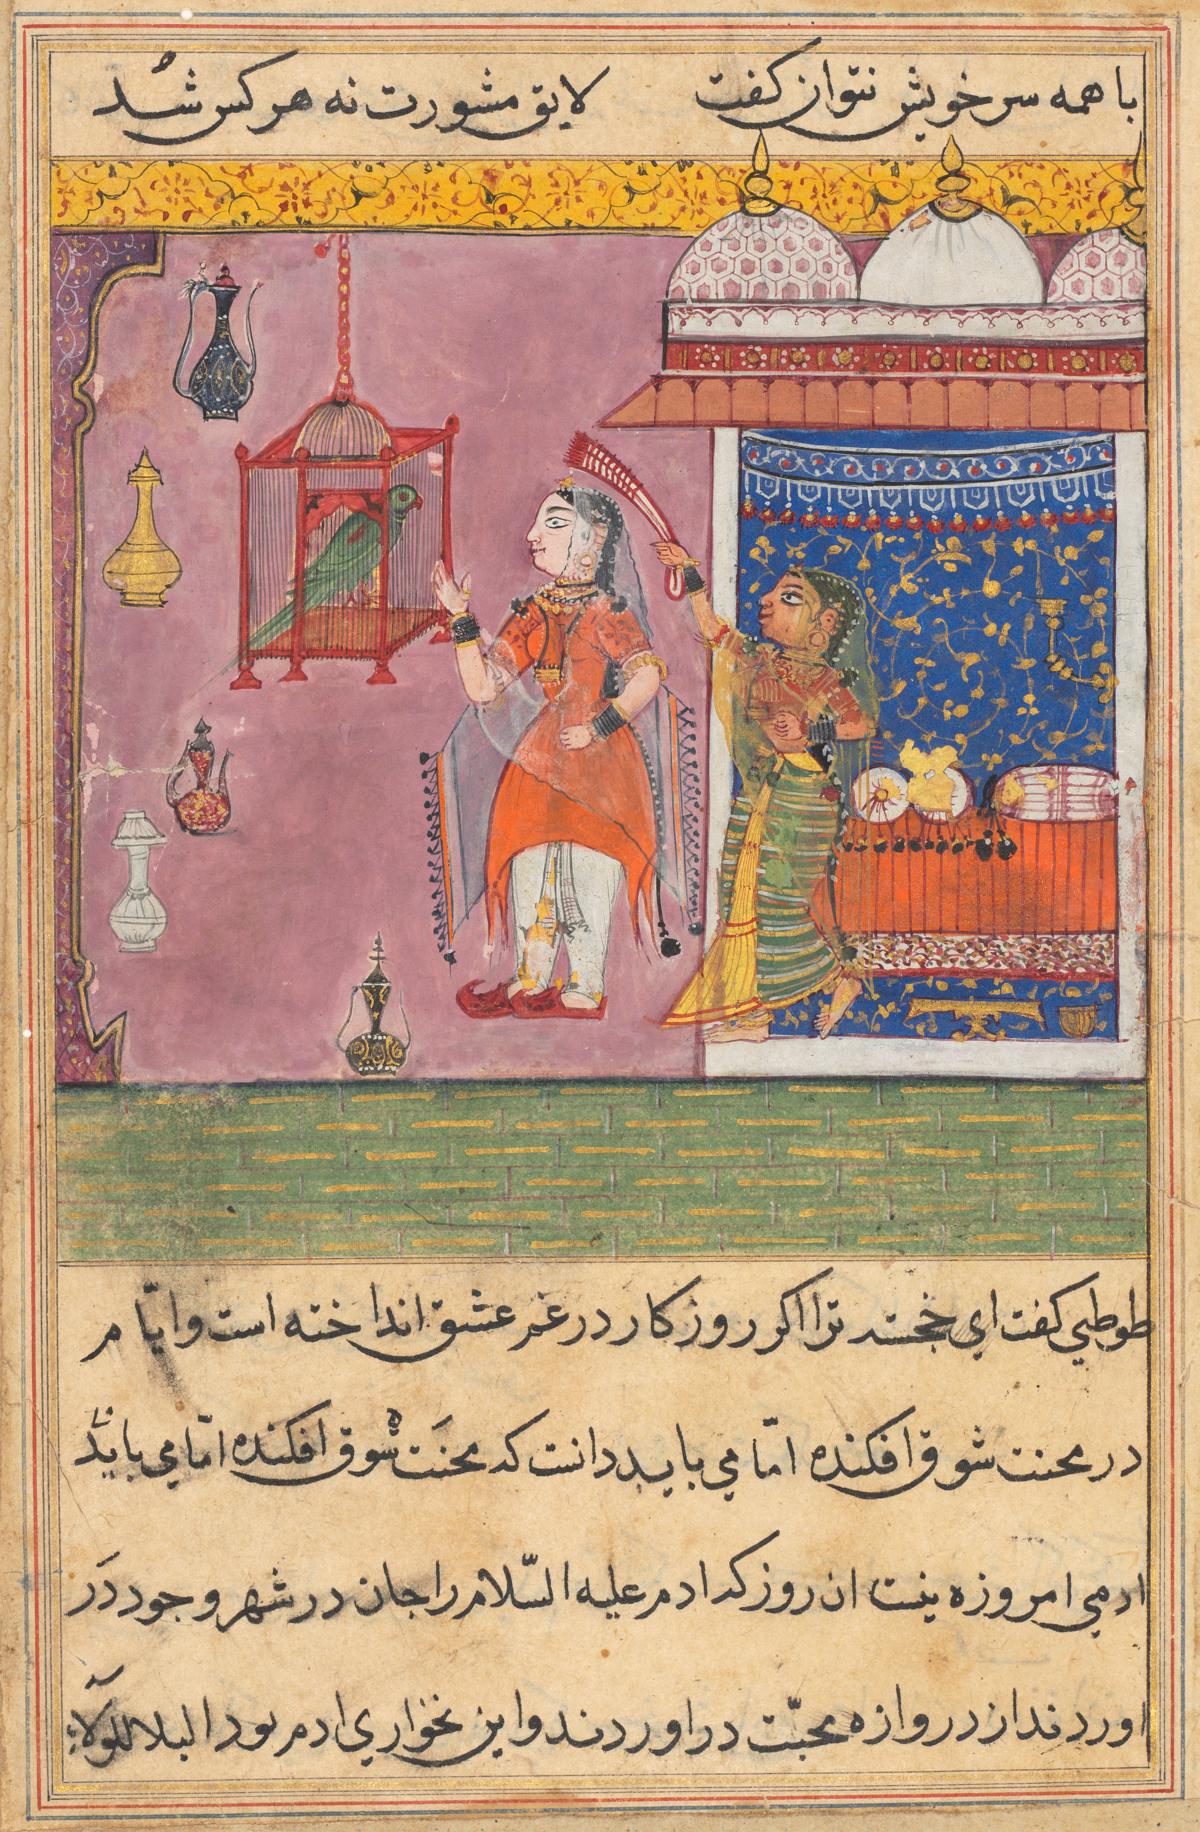 با همه سر خویش نتوان کفت لایق مشورت نه هر کس شد
طوطی کفت ای خجسته ترا اکر روزکار در غم عشق انداخته است و ایام
در محنت شوق افکنده اما می باید دانست که محنت شوق افکنده اما می باید
ادمی امروزه نیست ان روز که ادم علیه السلام را جان در شهر وجود در
اوردند از دروازه محبت در اوردند و این نخواری ادم بود البلا للولاء